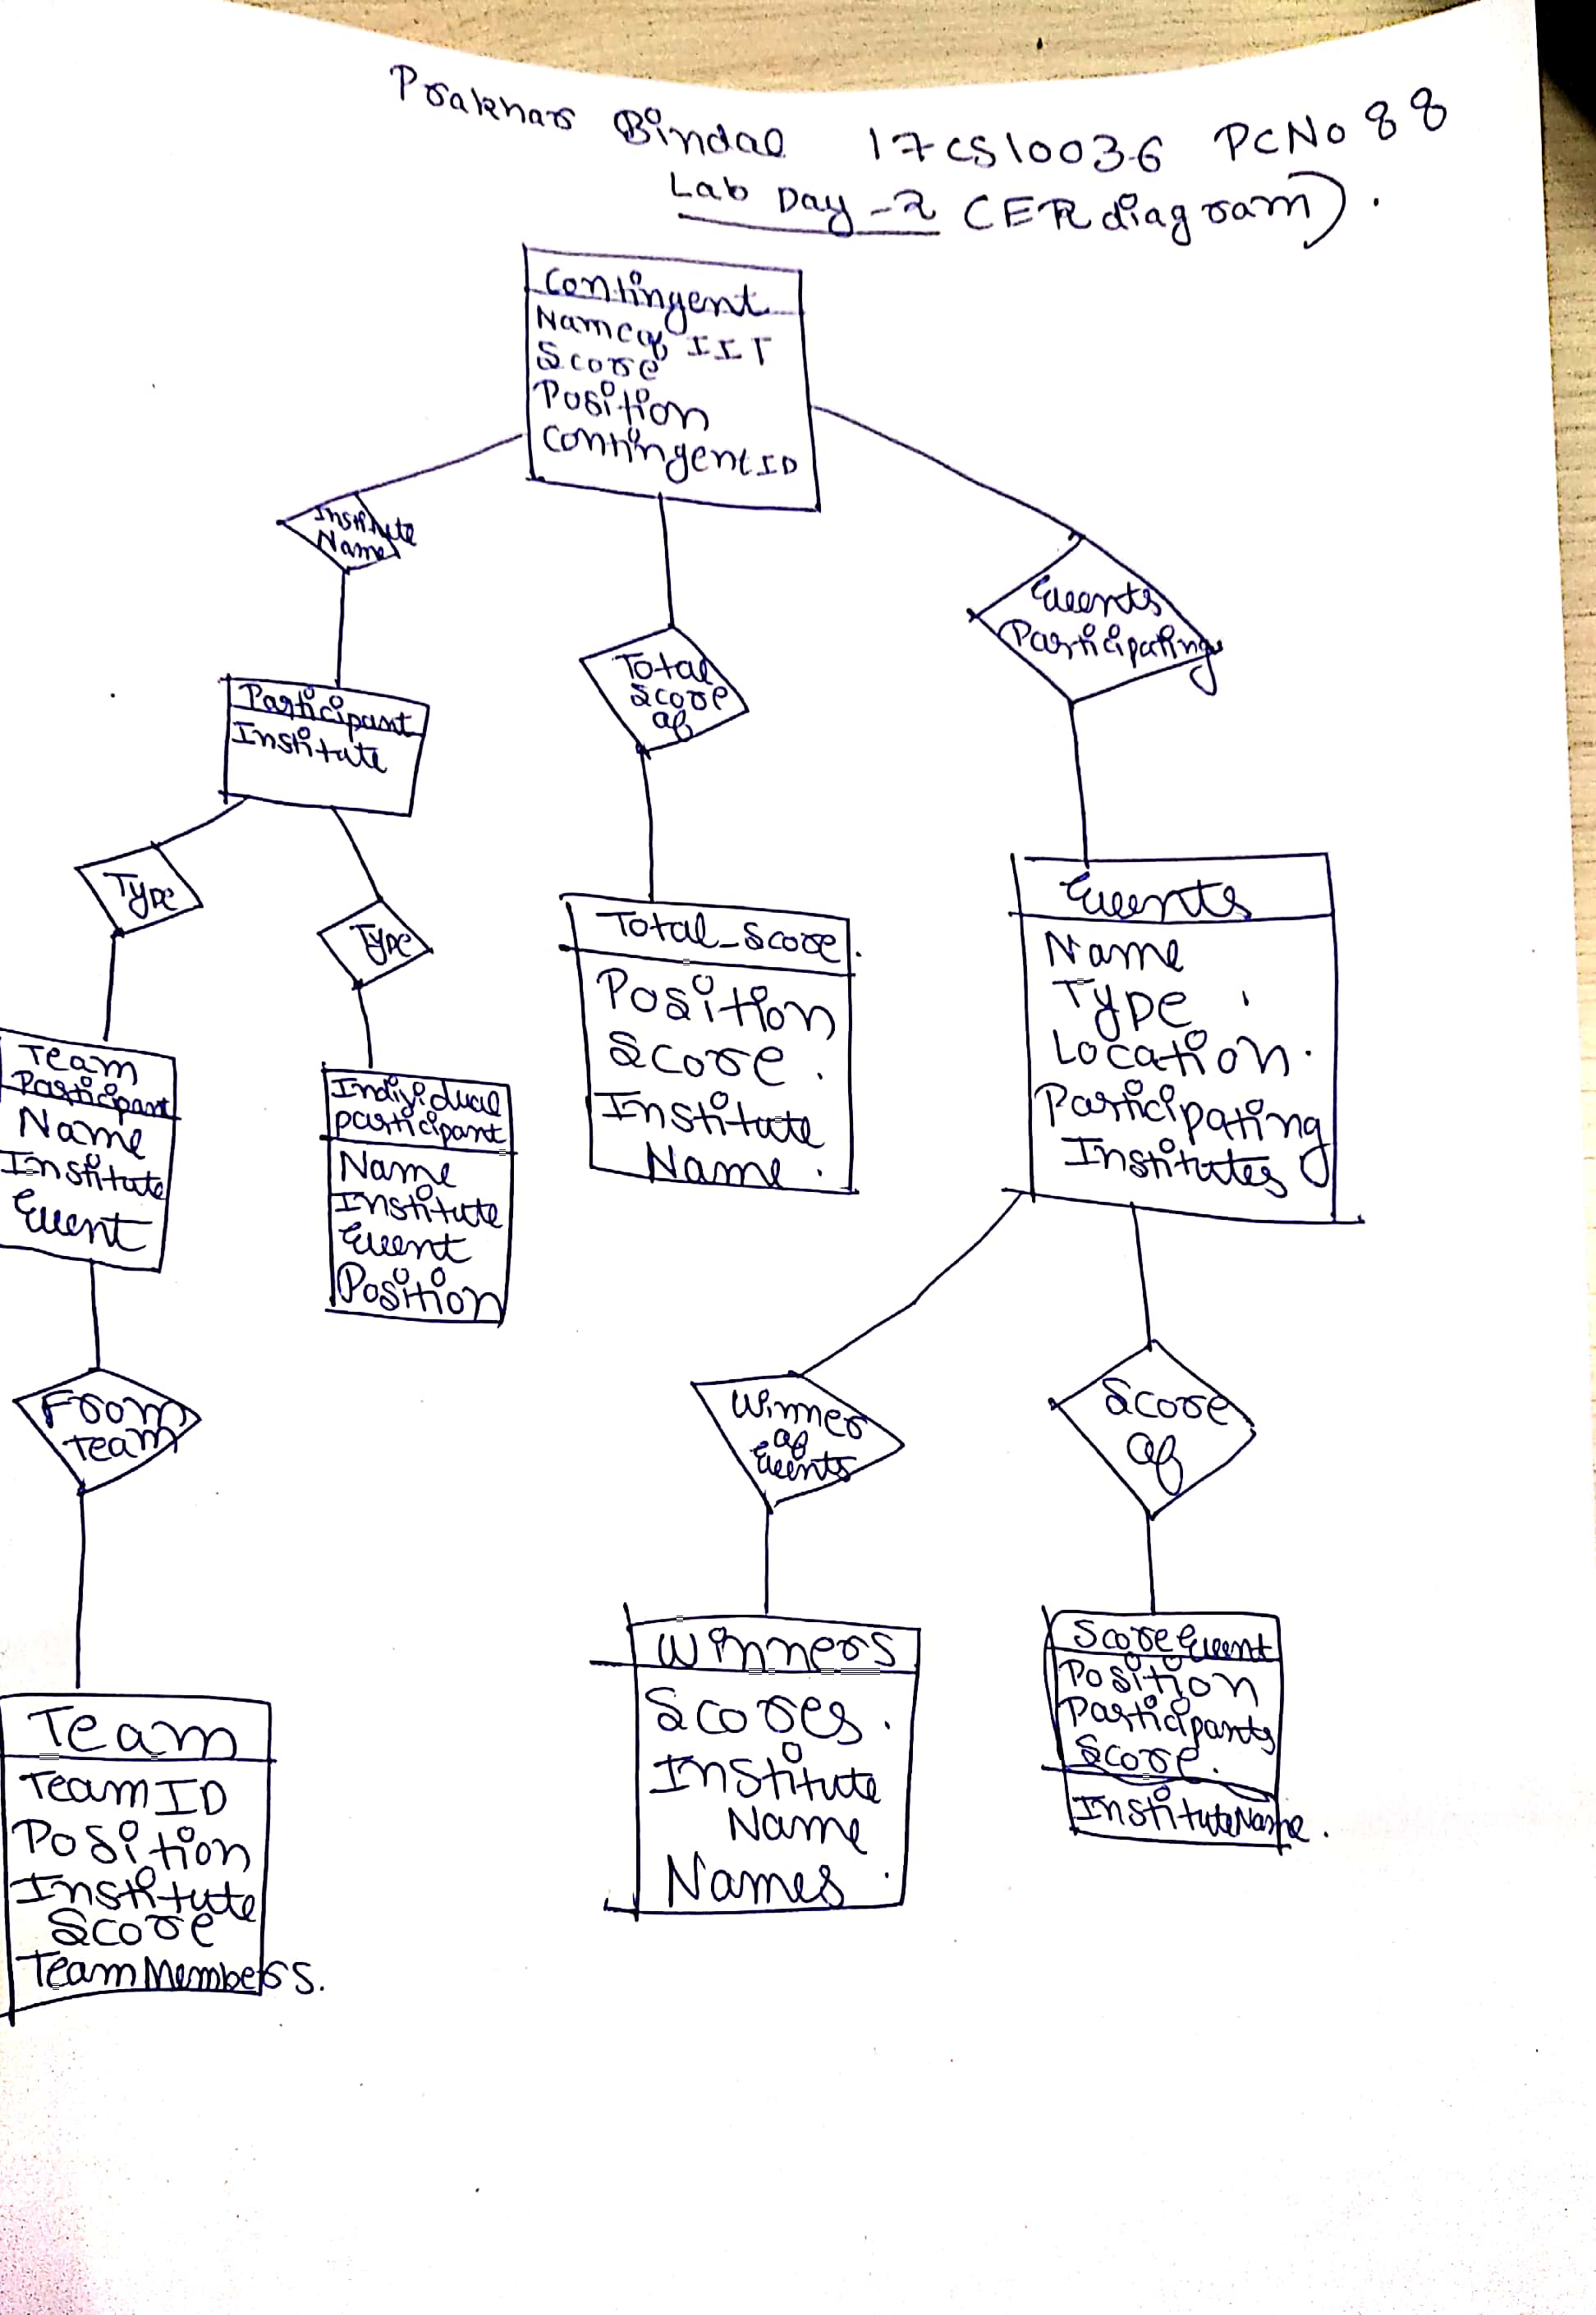 Prakhar Bindal 17CS10036 PC No 88
Lab Day-2 (ER diagram).
Contingent
Name of IIT
Score
Position
Contingent ID
Institute
Name
Total
Score
of
Events
Participating
Participant
Institute
Type
Type
Total_Score.
Position
Score.
Institute
Name.
Events
Name
Type
Location.
Participating
Institutes
Team
Participant
Name
Institute
Event
Individual
participant
Name
Institute
Event
Position
From
team
Winner
of
Events
Score
of
Team
Team ID
Position
Institute
Score
Team Members.
Winners
Scores.
Institute
Name
Names.
Score Event
Position
Participants
Score.
Institute Name.